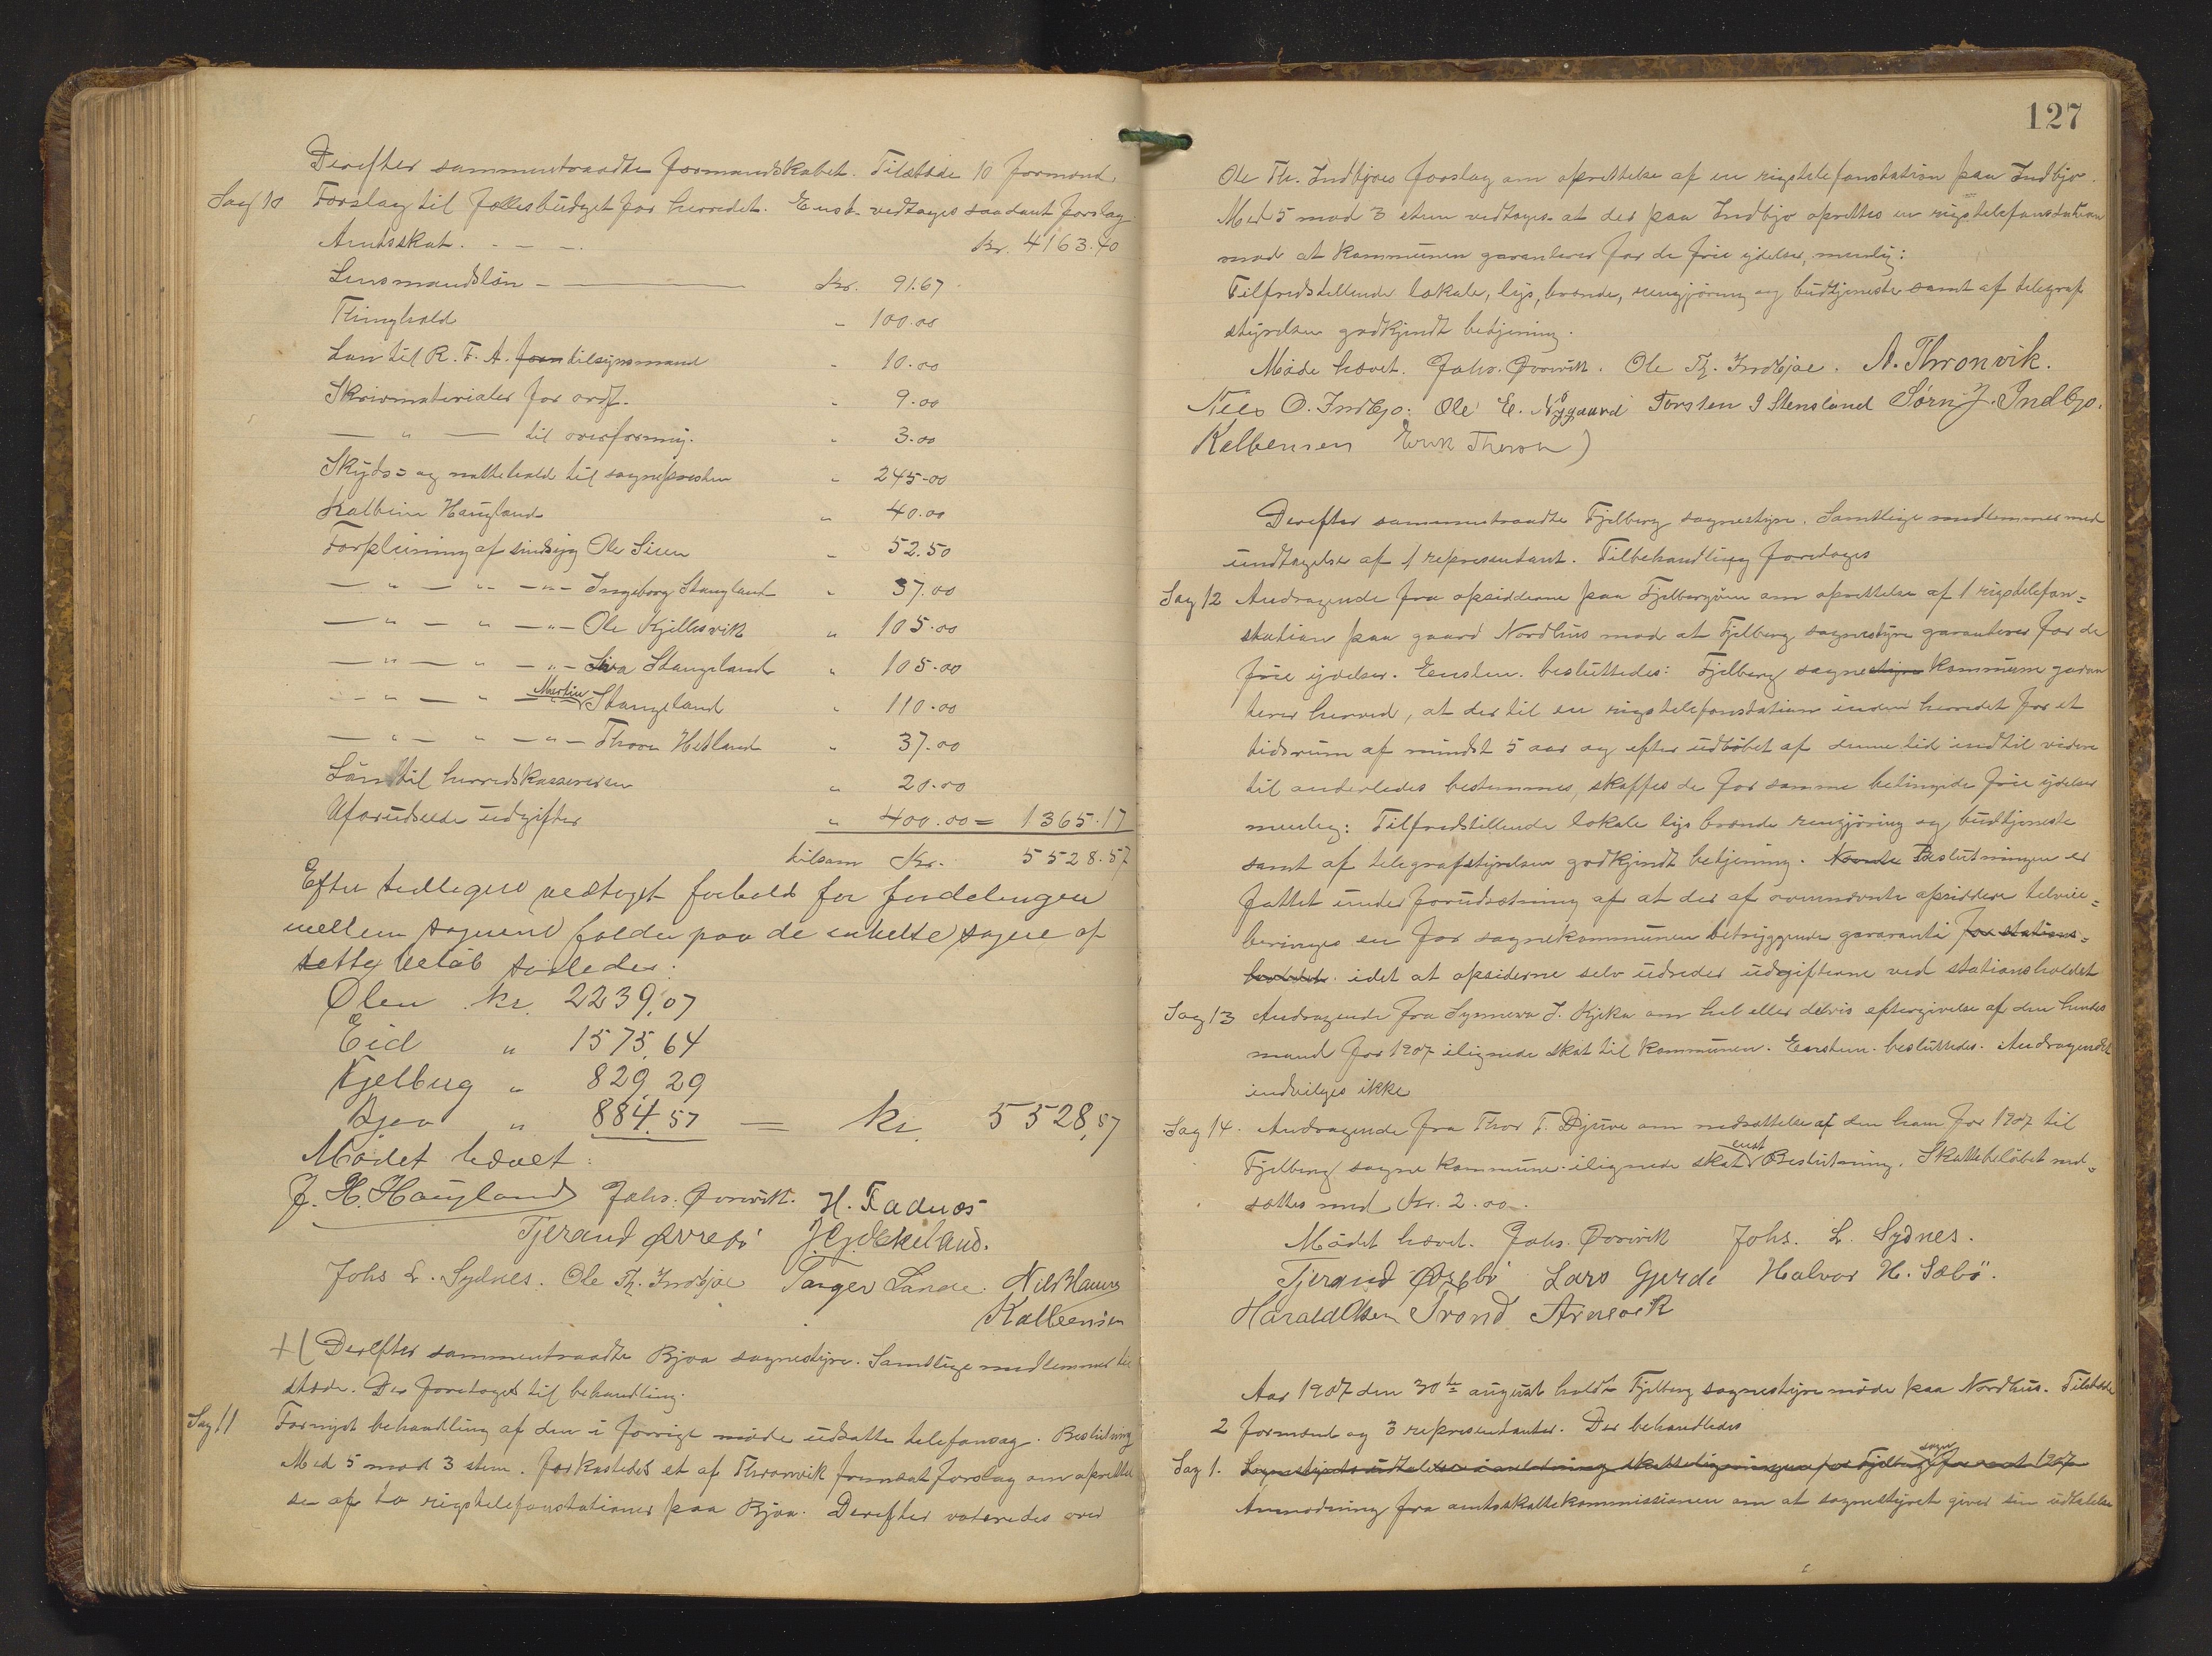 Derefter sammentraadte formandskabet. Tilstede 10 formænd.
Sag 10 Forslag til fællesbudget for herredet. Enst. vedtages saadant forslag
Amtsskat. - - - . kr. 4163.40
Lensmandsløn - — kr. 91.67
Thinghold " 100.00
Løn til R. F. A. foran tilsynsmand " 10.00
Skrivmaterialer for ordf. " 9.00
— " — til overformy. " 3.00
Skyds= og nattehold til sognepresten " 245.00
Kalbein Haugland " 40.00
Forpleining af sindsyg Ole Siren " 52.50
— " — " — " — Ingeborg Stangland " 37.00
— " — " — " — Ole Kjellesvik " 105.00
— " — " — " — Siva Stangeland " 105.00
— " — " Martin Stangeland " 110.00
— " — " — " — Thora Hetland " 37.00
Løn til herredskassereren " 20.00
Uforudseede udgifter " 400.00 = 1365.17
tilsam Kr. 5528.57
Efter tidligere vedtaget forhold for fordelingen
mellem sognene falder paa de enkelte sogne af
dette beløb således:
Ølen kr. 2239,07
Eid " 1575,64
Fjelberg " 829,29
Bjoa " 884,57 = kr. 5528,57
Mødet hævet.
J. H. Haugland Johs. Øvrevik. H. Fadnes
Tjerand Øvrebø J. Gj. Ekeland.
Johs L. Sydnes. Ole Th. Indbjoe Torger Lunde. Nils Hauge
Kalbensen
+( Derefter sammentraadte Bjoa sognestyre. Samtlige medlemmer til
stede. Der foretoges til behandling.
Sag 11 Fornyet behandling af den i forrige møde udsatte telefonsag. Beslutning
Med 5 mod 3 stem. forkastedes et af Thronvik fremsat forslag om oprettel
se af to rigstelefonstationer paa Bjoa. Derefter voteredes over
127
Ole Th. Indbjoes forslag om oprettelse af en rigstelefonstation paa Indbjo.
Med 5 mod 3 stem vedtages at der paa Indbjo oprettes en rigstelefonstation
mod at kommunen garanterer for de frie ydelser, nemlig:
Tilfredstillende lokale, lys, brænde, rengjøring og budtjeneste samt af telegraf
styrelsen godkjendt betjening.
Møde hævet. Johs. Øvrevik. Ole Th. Indbjoe. A. Thronvik.
Nils O. Indbjo. Ole E. Nygaard Torsten I Stensland Sørn J. Indbjo.
Kalbensen Erik Thoron )
Derefter sammentraadte Fjelberg sognestyre. Samtlige medlemmer med
undtagelse af 1 representant. Tilbehandling foretoges
Sag 12 Andragende fra opsidderne paa Fjelbergøen om oprettelse af 1 rigstelefon=
station paa gaard Nordhus mod at Fjelberg sognestyre garanterer for de
frie ydelser. Enstem. besluttedes: Fjelberg sognestyre kommune garan
terer herved, at der til en rigstelefonstation inden herredet for et
tidsrum af mindst 5 aar og efter udløbet af denne tid indtil videre
til anderledes bestemmes, skaffes de for samme betingede frie ydelser
nemlig: Tilfredstillende lokale lys brænde rengjøring og budtjeneste
samt af telegrafstyrelsen godkjendt betjening. Beslutningen er
fattet under forudsætning af at der af ovennævnte opsiddere tilveie=
bringes en for sognekommunen betryggende gararanti for stations=
holdet. idet at opsiderne selv udreder udgifterne ved stationsholdet
Sag 13 Andragende fra Synneva J. Kjeka om hel eller delvis eftergivelse af den hendes
mand for 1907 ilignede skat til kommunen. Enstem. besluttedes. Andragendet
indvilges ikke
Sag 14. Andragende fra Thor T. Djuve om nedsættelse af den ham for 1907 til
Fjelberg sogne kommune ilignede skat enst. Beslutning. Skattebeløbet ned=
sættes med kr. 2.00.
Mødet hævet. Johs. Øvrevik Johs. L. Sydnes.
Tjerand Øvrebø Lars Gjerde Halvor H. Sæbø.
Harald Olsen Trond Arnevik
Aar 1907 den 30te august holdt Fjelberg sognestyre møde paa Nordhus. Tilstede
2 formænd og 3 representanter. Der behandledes
Sag 1. Sognestyrets udtalelse i anledning skatteligningen for Fjelberg sogn for aaret 1907
Anmodning fra amtsskattekommissionen om at sognestyret giver sin udtalelse